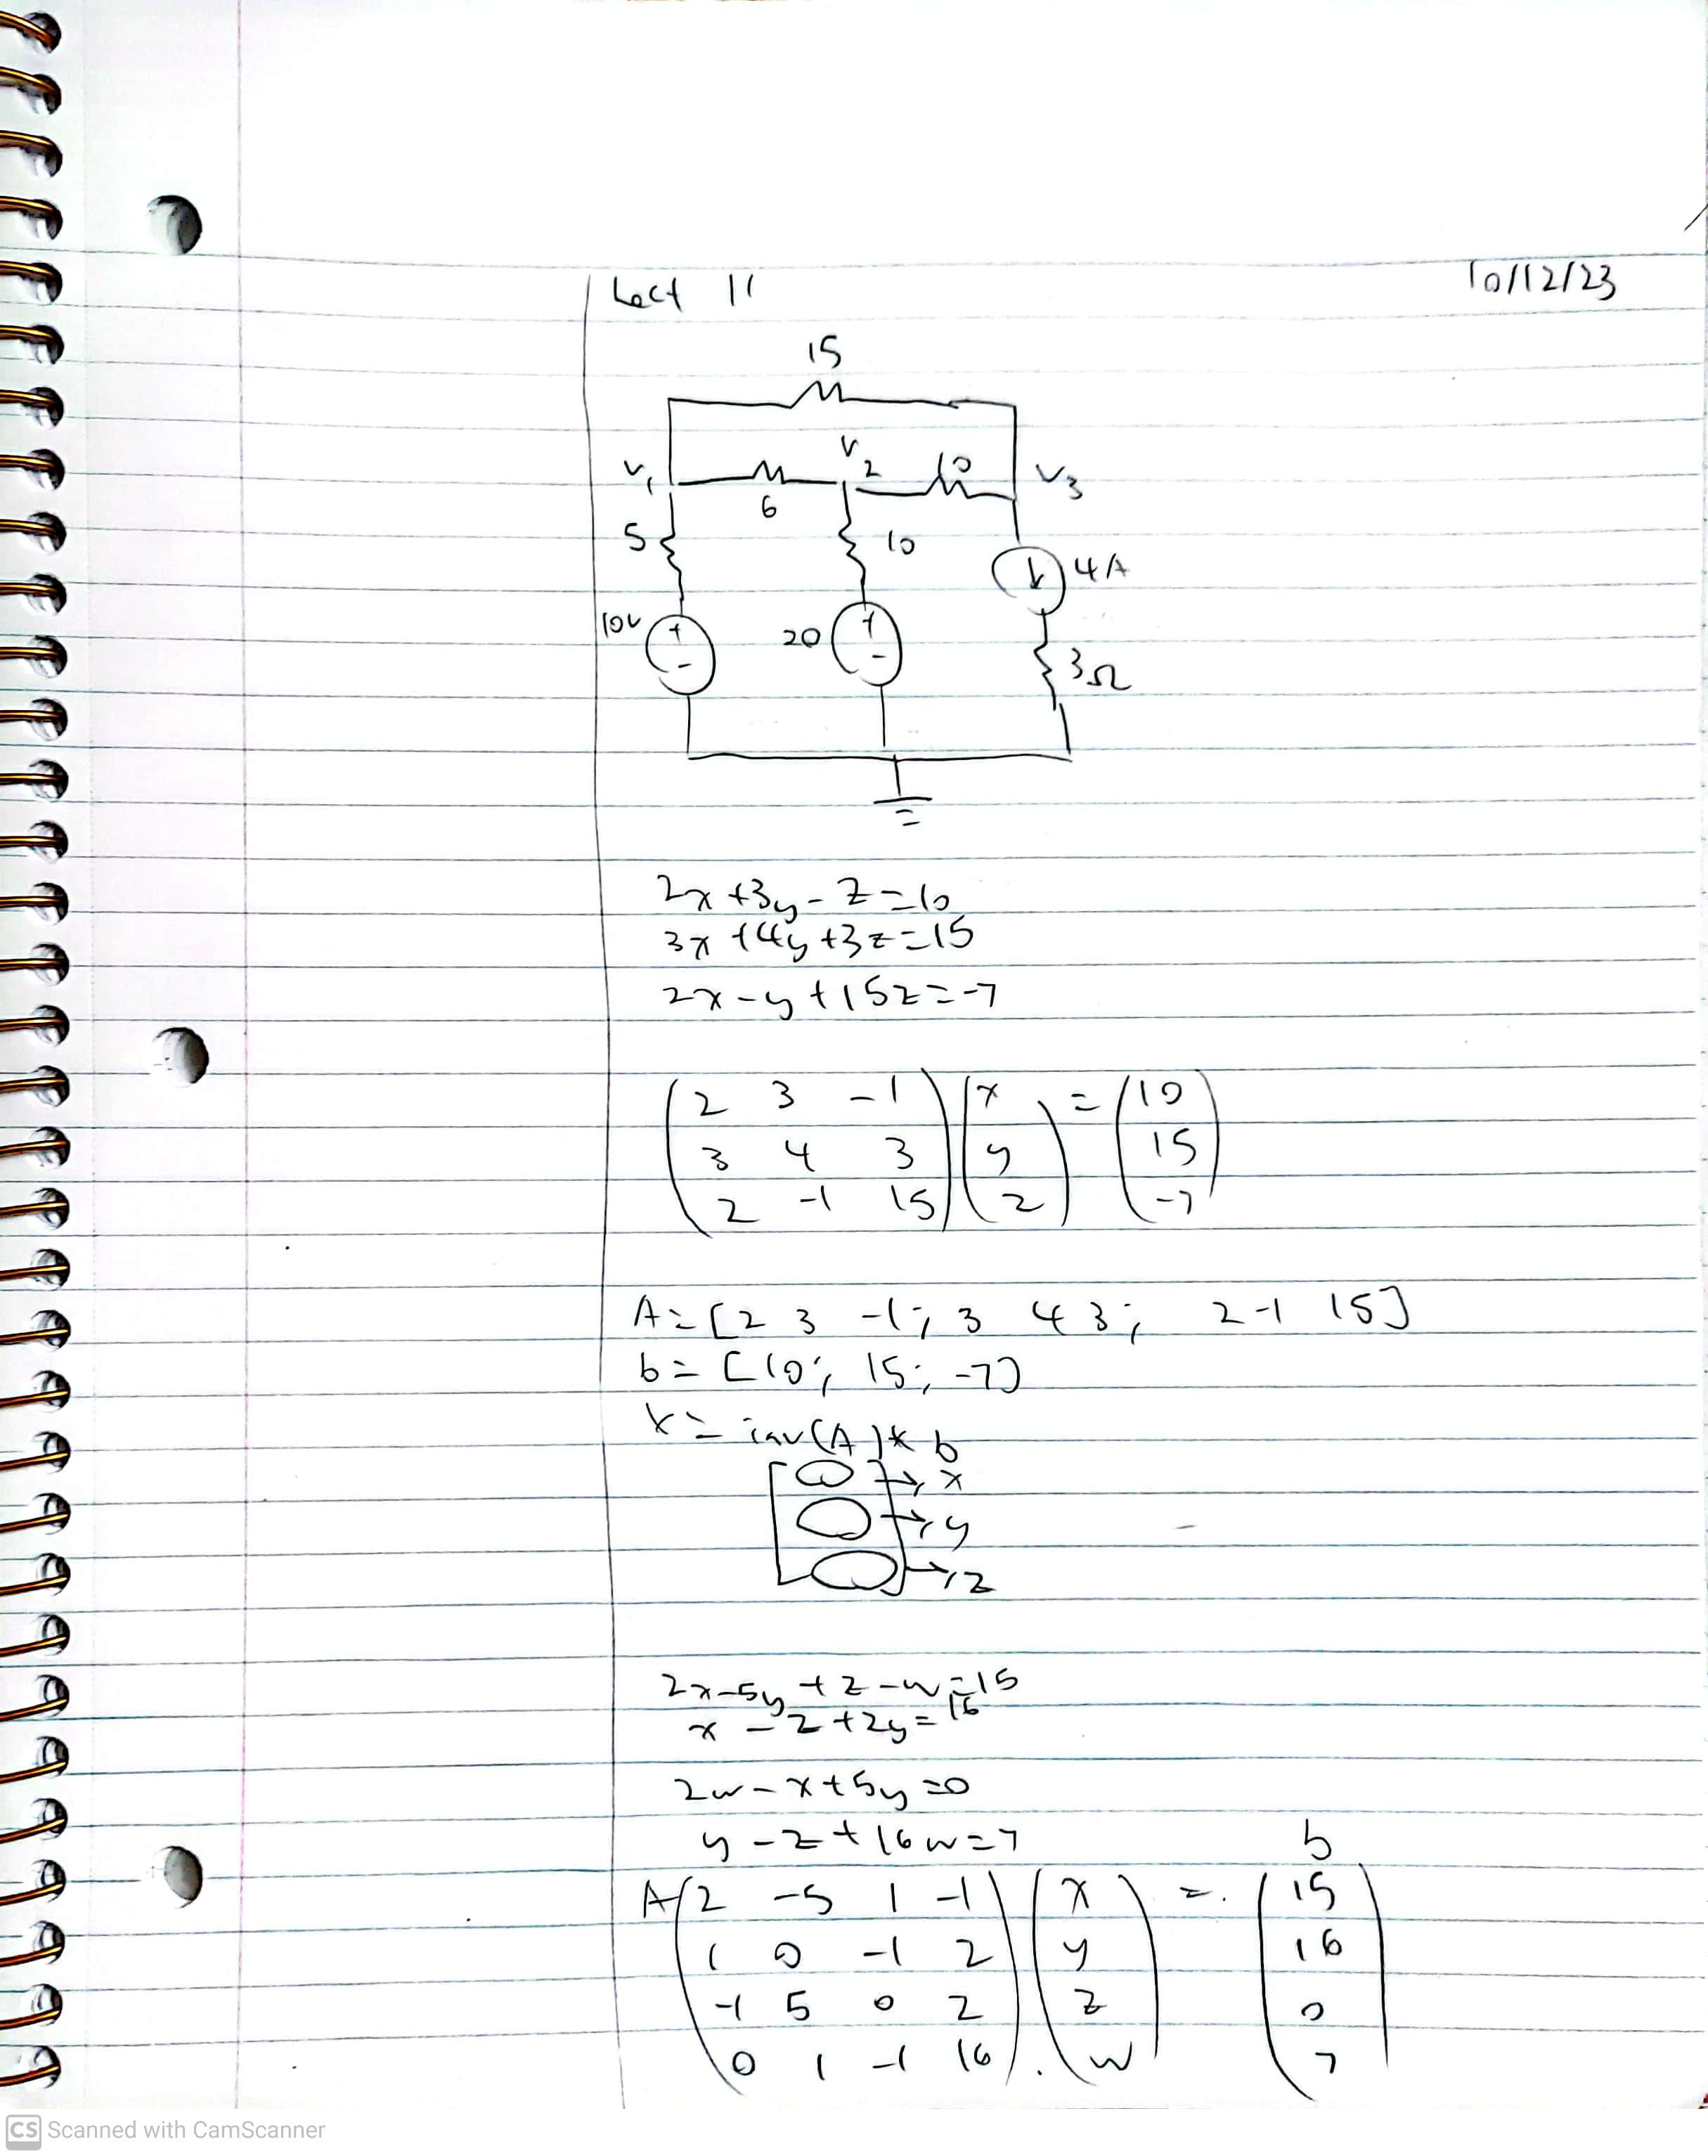 Lect 11 10/12/23
15
V1 6 V2 10 V3
5 10 4A
10V + - 20 + - 3Ω
2x+3y-z=10
3x+4y+3z=15
2x-y+15z=-7
(2 3 -1) (x) = (10)
(3 4 3) (y) (15)
(2 -1 15) (z) (-7)
A=[2 3 -1; 3 4 3; 2 -1 15]
b=[10; 15; -7]
x=inv(A)*b
→ x
→ y
→ z
2x-5y+z-w=15
x-z+2y=16
2w-x+5y=0
y-z+16w=7
b
A (2 -5 1 -1) (x) = (15)
(1 0 -1 2) (y) (16)
(-1 5 0 2) (z) (0)
(0 1 -1 16) . (w) (7)
CS Scanned with CamScanner